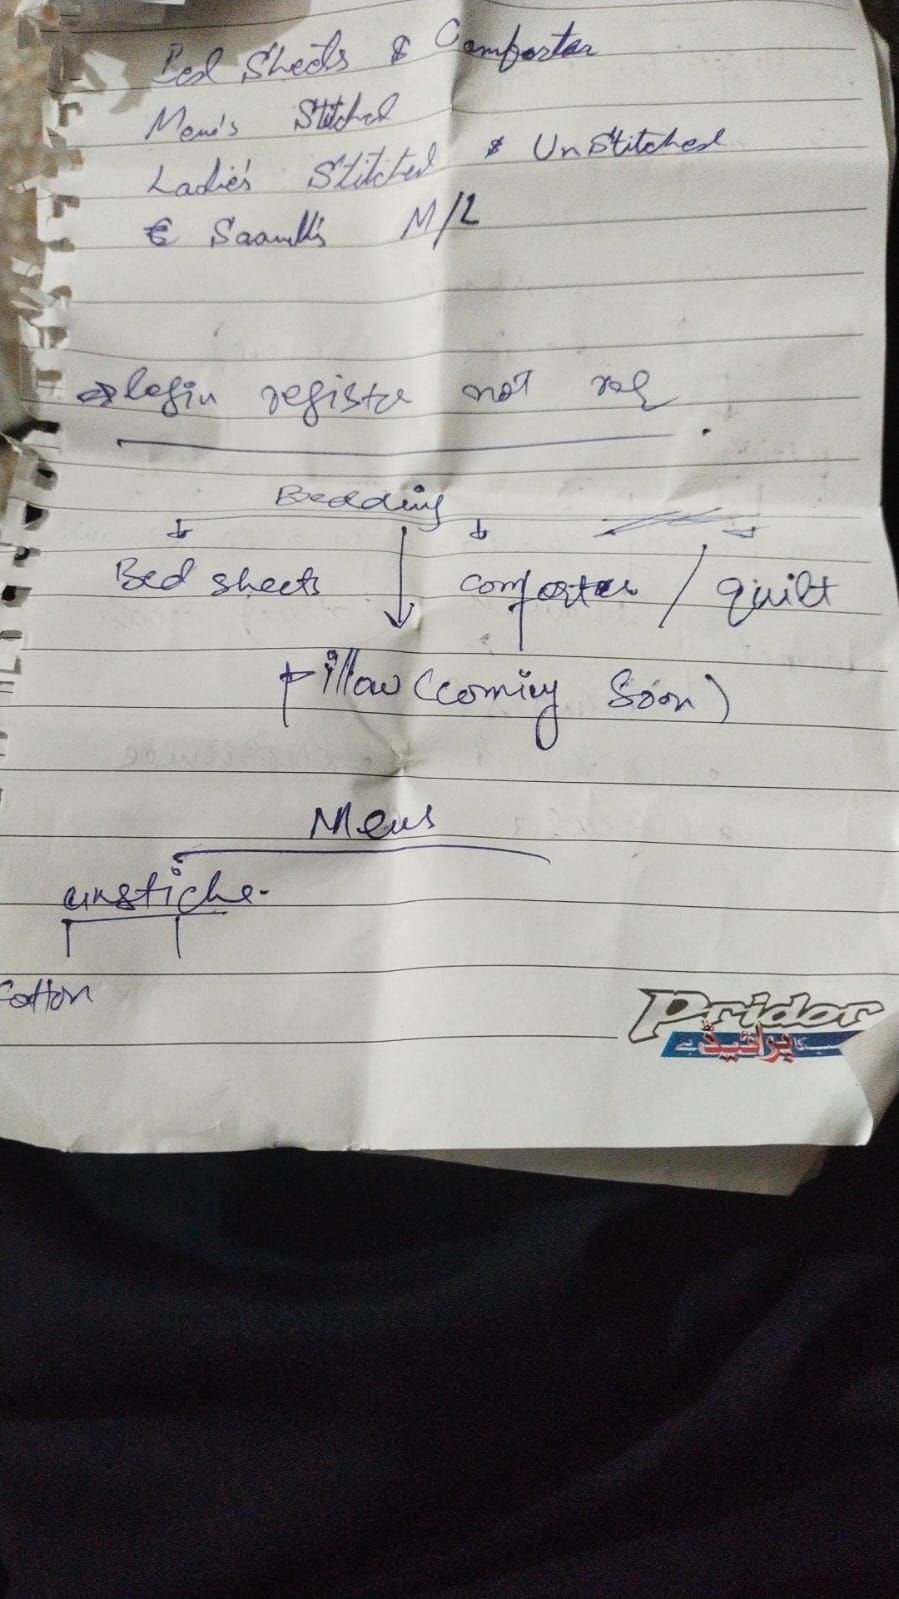 Bed Sheets & Comforter
Men's Stitched
Ladie's Stitched & UnStitched
& M/L
login register not req
Bedding
Bed sheets comforter / quilt
pillow (coming Soon)
Mens
unstiche-
Cotton
Pridor
پرائیڈ